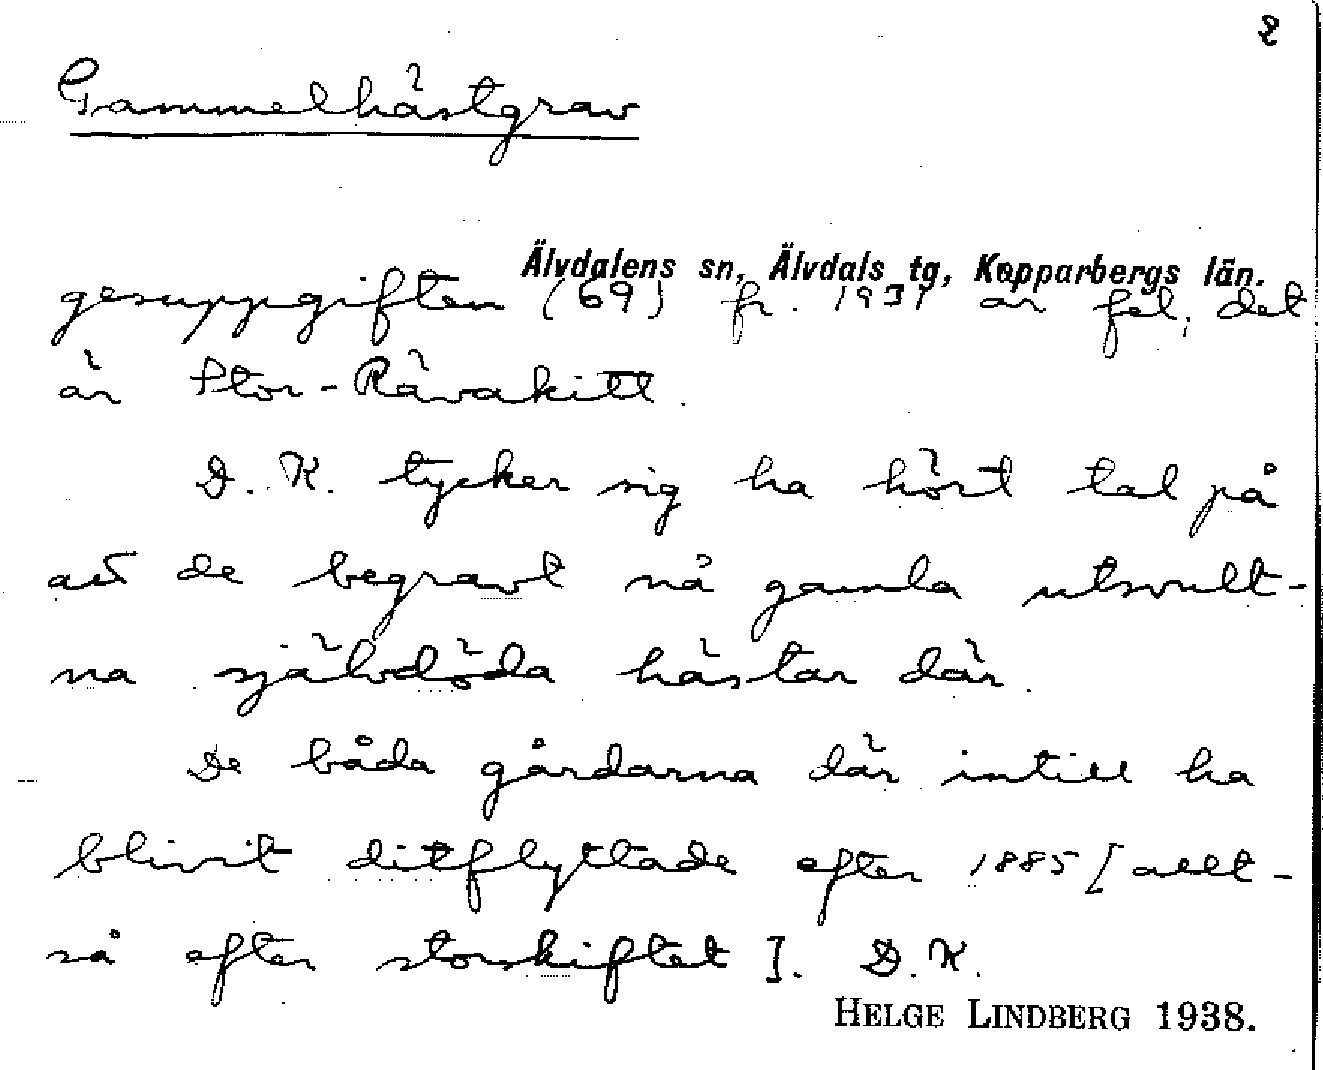 2
Gammelhästgrav
Älvdalens sn, Älvdals tg, Kopparbergs län.
gesuppgiften (69) fr. 1937 är fel, det
är Stor-Rävakitt.
D. K. tycker sig ha hört tal på
att de begravt nå gamla utsvult-
na självdöda hästar där.
De båda gårdarna där intill ha
blivit ditflyttade efter 1885 [allt-
så efter storskiftet]. D. K.
HELGE LINDBERG 1938.